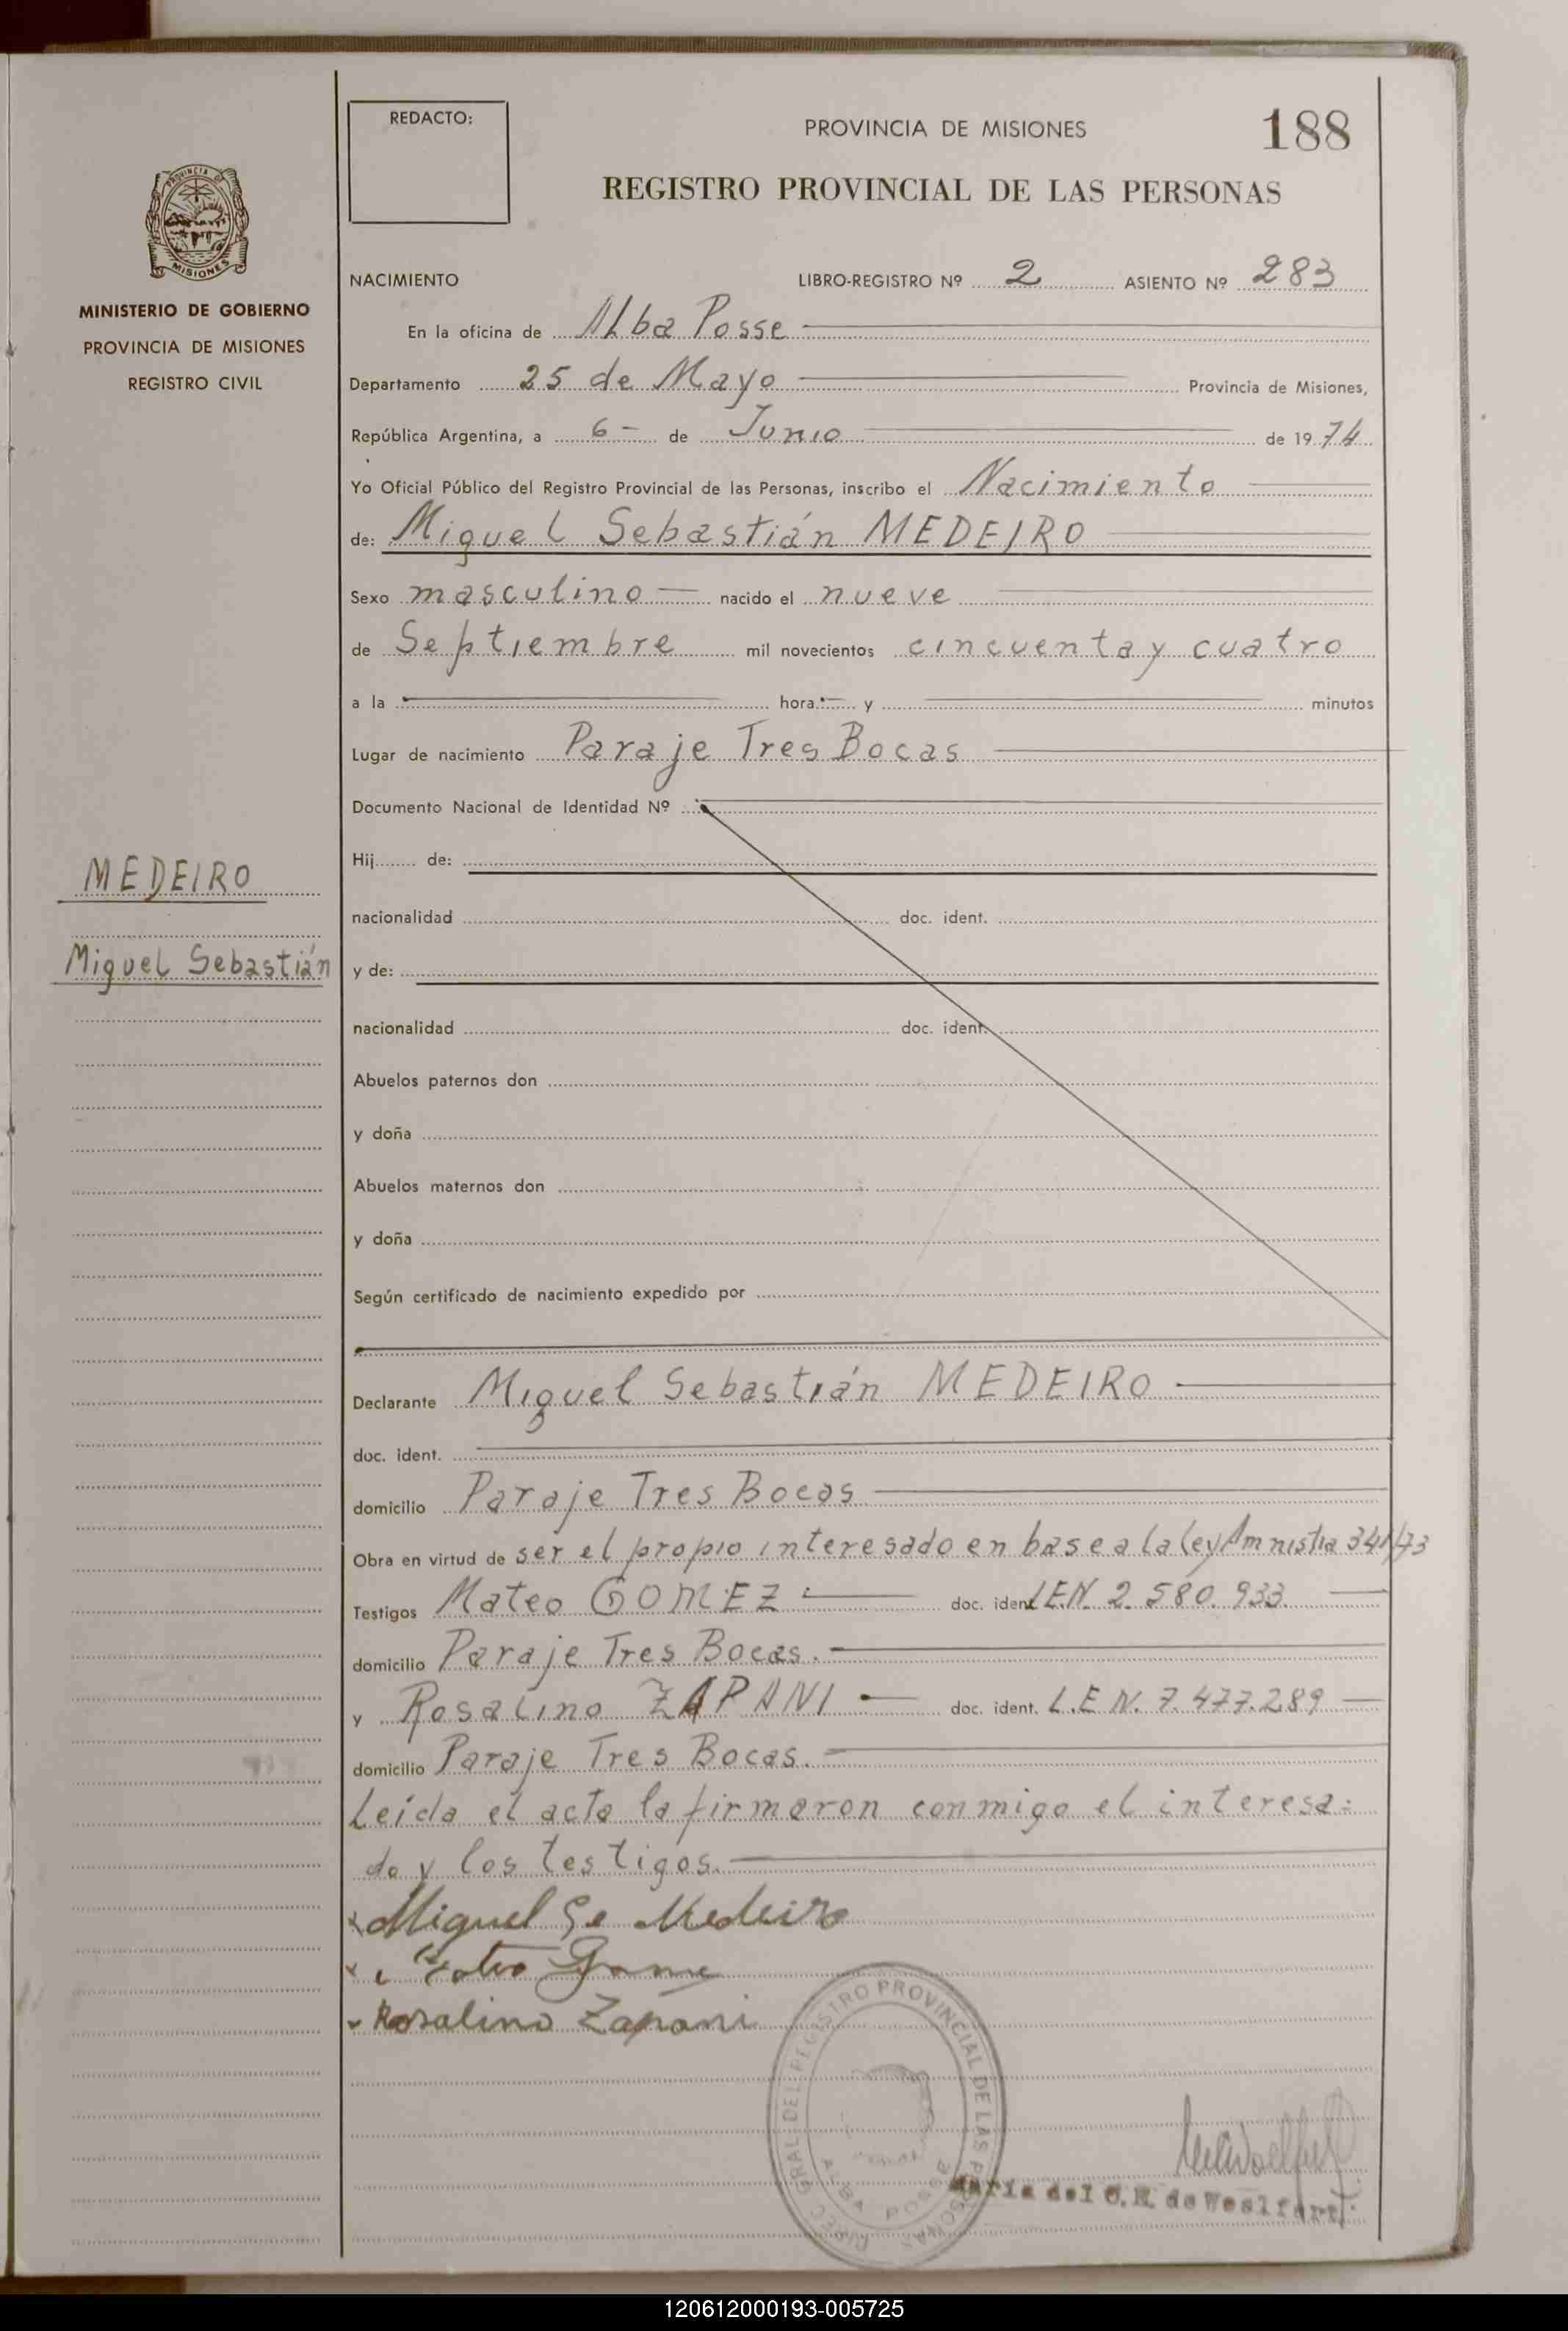 REDACTO:
PROVINCIA DE MISIONES
188
REGISTRO PROVINCIAL DE LAS PERSONAS
PROVINCIA DE
MISIONES
MINISTERIO DE GOBIERNO
PROVINCIA DE MISIONES
REGISTRO CIVIL
NACIMIENTO LIBRO-REGISTRO Nº 2 ASIENTO Nº 283
En la oficina de Alba Posse
Departamento 25 de Mayo Provincia de Misiones,
República Argentina, a 6- de Junio de 1974
Yo Oficial Público del Registro Provincial de las Personas, inscribo el Nacimiento
de: Miguel Sebastián MEDEIRO
Sexo masculino nacido el nueve
de Septiembre mil novecientos cincuenta y cuatro
a la hora y minutos
Lugar de nacimiento Paraje Tres Bocas
Documento Nacional de Identidad Nº
Hij de:
MEDEIRO
nacionalidad doc. ident.
Miguel Sebastián
y de:
nacionalidad doc. ident.
Abuelos paternos don
y doña
Abuelos maternos don
y doña
Según certificado de nacimiento expedido por
Declarante Miguel Sebastián MEDEIRO
doc. ident.
domicilio Paraje Tres Bocas
Obra en virtud de ser el propio interesado en base a la ley Amnistia 341/73
Testigos Mateo GOMEZ doc. ident L.E.N. 2.580.933.
domicilio Paraje Tres Bocas.
y Rosalino ZAPANI doc. ident. L.E.N. 7.477.289
domicilio Paraje Tres Bocas.
Leída el acta la firmaron conmigo el interesa-
do y los testigos.
Miguel Se Medeiro
Rosalino Zapani
DIREC. GRAL. DEL REGISTRO PROVINCIAL DE LAS PERSONAS
ALBA POSSE
María del C. de
120612000193-005725